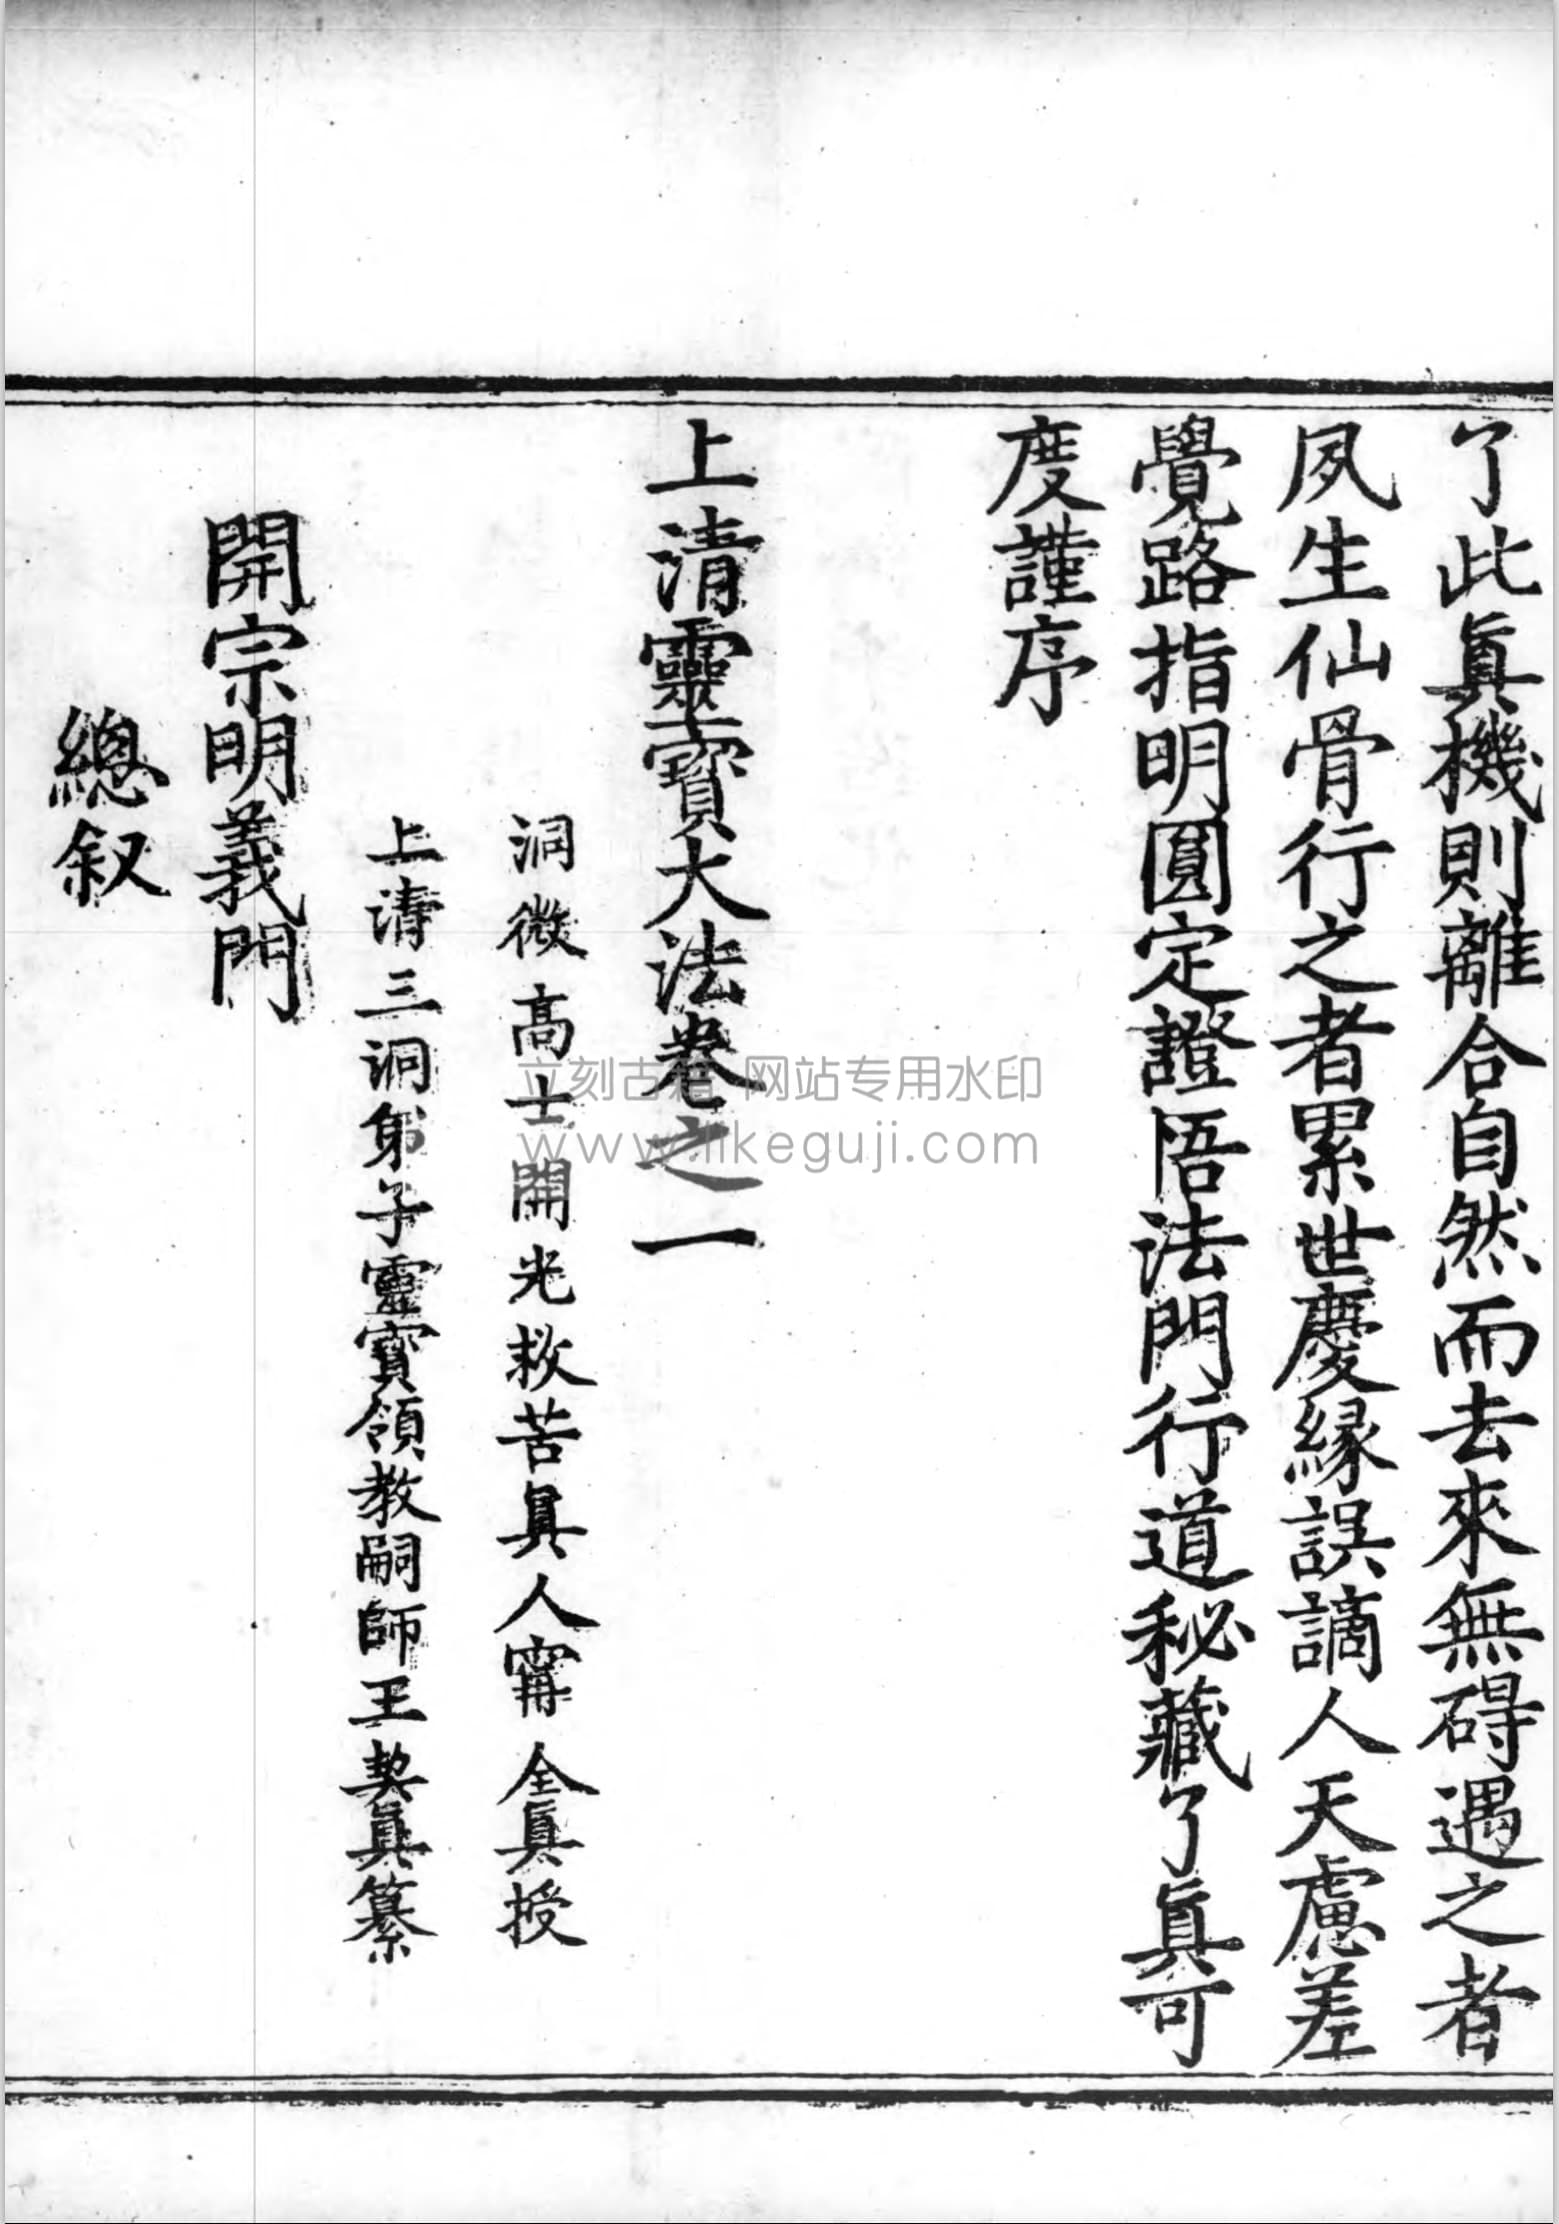 了此眞機則離合自然而去來無碍遇之者
夙生仙骨行之者累世慶緣誤謫人天慮差
覺路指明圓定證悟法門行道秘藏了眞可
度謹序
上清靈寶大法卷之一
洞微高士開光救苦眞人甯全眞授
上清三洞弟子靈寶領教嗣師王契眞纂
開宗明義門
總叙
立刻古籍 网站专用水印
www.likeguji.com